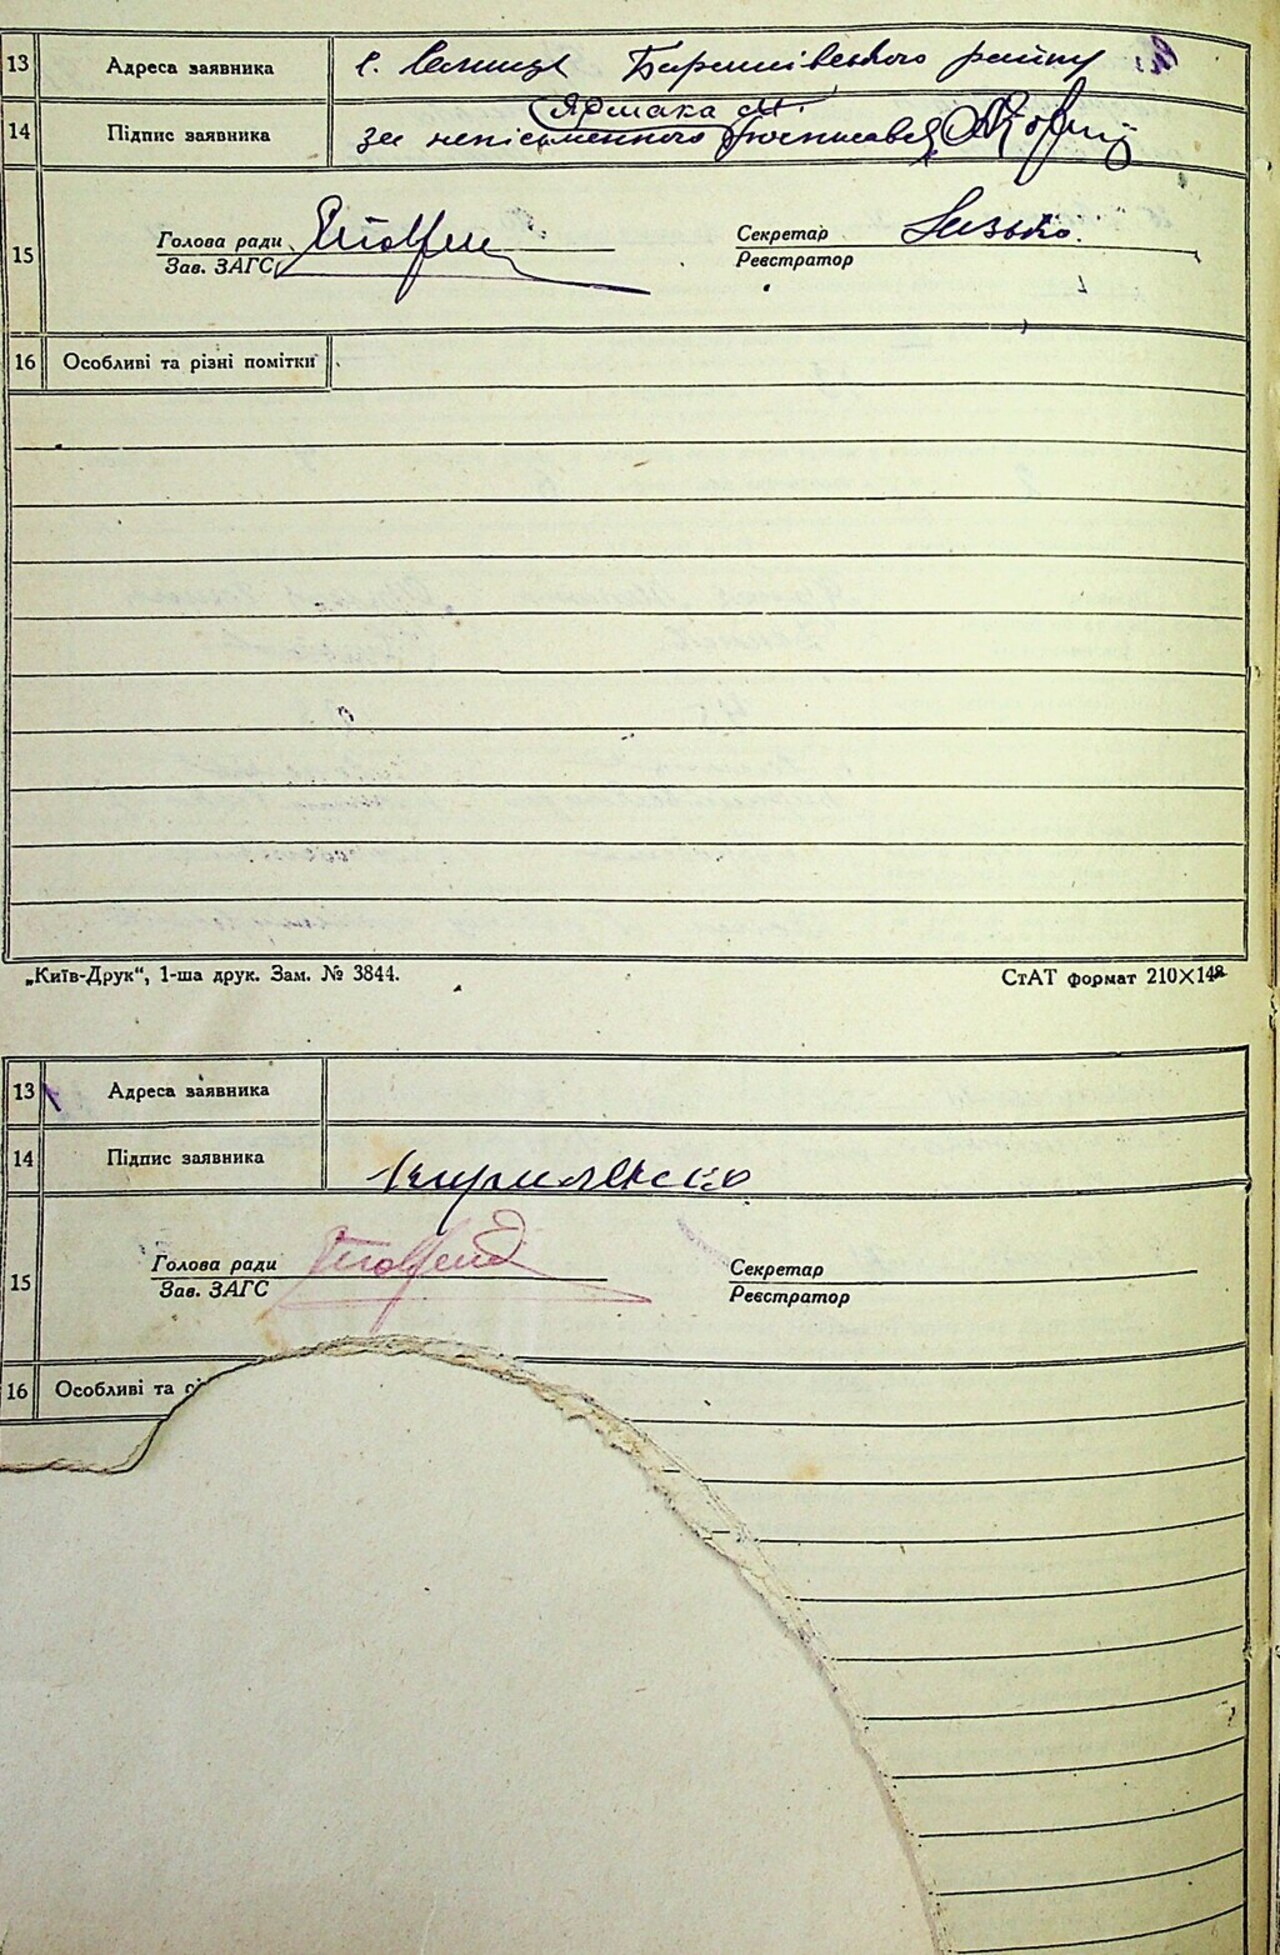 13 Адреса заявника с. Селище Баришівського району
Ярмака М.
14 Підпис заявника за неписьменного росписавсь
15 Голова ради Секретар Низько.
Зав. ЗАГС Реєстратор
16 Особливі та різні помітки
„Київ-Друк“, 1-ша друк. Зам. № 3844. СтАТ формат 210×148
13 Адреса заявника
14 Підпис заявника Кириленко
15 Голова ради Секретар
Зав. ЗАГС Реєстратор
16 Особливі та